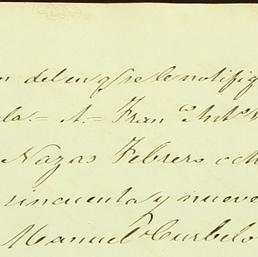 n del en q.e se le notifiq
la.= A.= Fran.co Ant.o
Nazas Febrero och
cincuenta y nueve
Manuel Curbelo